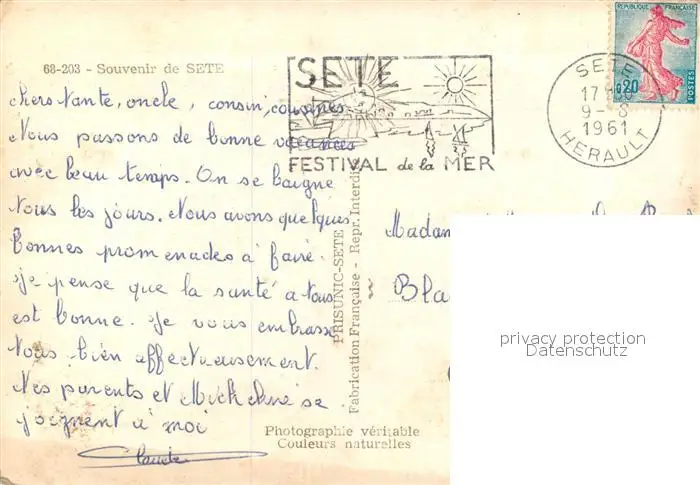 68-203 - Souvenir de SETE
chers tante, oncle, cousin, cousines
Nous passons de bonne vacances
avec beau temps. On se baigne
tous les jours. Nous avons quelques
bonnes promenades à faire.
je pense que la santé a tous
est bonne. Je vous embrasse
tous bien affectueusement.
Mes parents et Micheline se
joignent à moi
Claude
PRISUNIC-SETE
Fabrication Française - Repr. Interdi
Photographie véritable
Couleurs naturelles
SETE
FESTIVAL de la MER
SETE
17H
9-8
1961
HERAULT
REPUBLIQUE FRANÇAISE
0,20
POSTES
Madam
Bla
privacy protection
Datenschutz